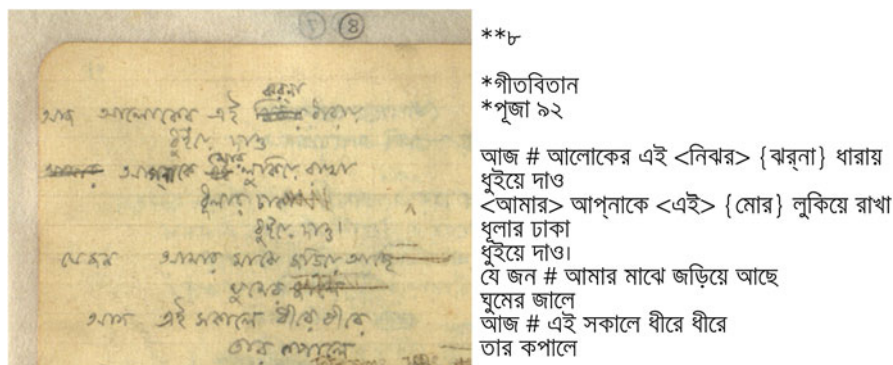 8
ঝর্‌না
আজ আলোকের এই নিঝর ধারায়
ধুইয়ে দাও
মোর
আমার আপ্‌নাকে এই লুকিয়ে রাখা
ধূলার ঢাকা
ধুইয়ে দাও।
যে জন আমার মাঝে জড়িয়ে আছে
ঘুমের জালে
আজ এই সকালে ধীরে ধীরে
তার কপালে
**৮
*গীতবিতান
*পূজা ৯২
আজ # আলোকের এই <নিঝর> {ঝর্‌না} ধারায়
ধুইয়ে দাও
<আমার> আপ্‌নাকে <এই> {মোর} লুকিয়ে রাখা
ধূলার ঢাকা
ধুইয়ে দাও।
যে জন # আমার মাঝে জড়িয়ে আছে
ঘুমের জালে
আজ # এই সকালে ধীরে ধীরে
তার কপালে